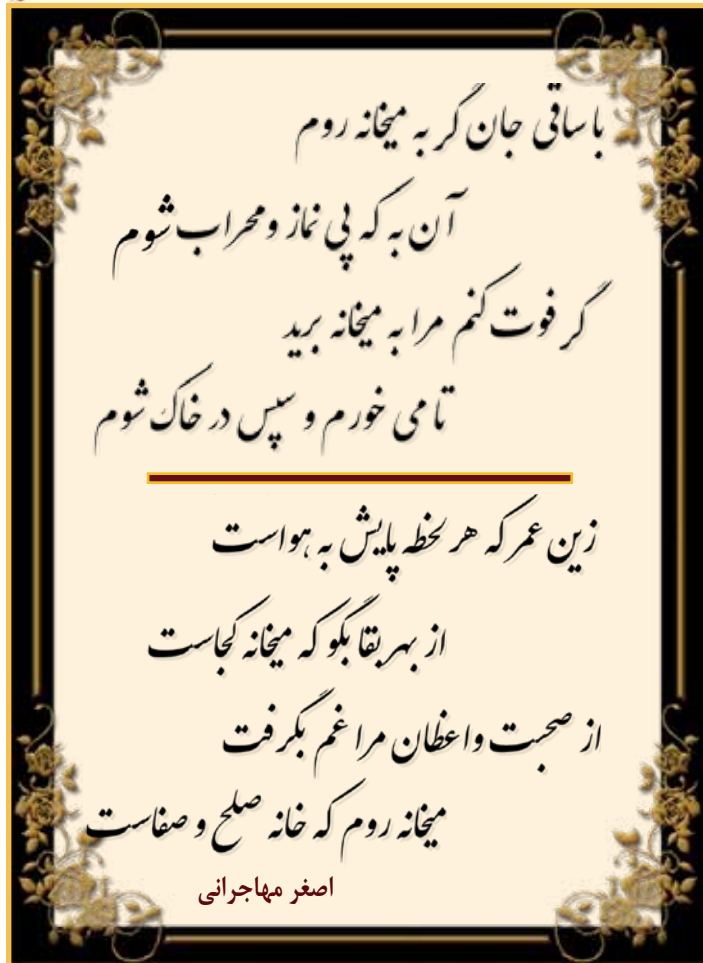 با ساقی جان گر به میخانه روم
آن به که پی نماز و محراب شوم
گر فوت کنم مرا به میخانه برید
تا می خورم و سپس در خاک شوم
زین عمر که هر لحظه پایش به هواست
از بهر بقا بگو که میخانه کجاست
از صحبت واعظان مرا غم بگرفت
میخانه روم که خانه صلح و صفاست
اصغر مهاجرانی